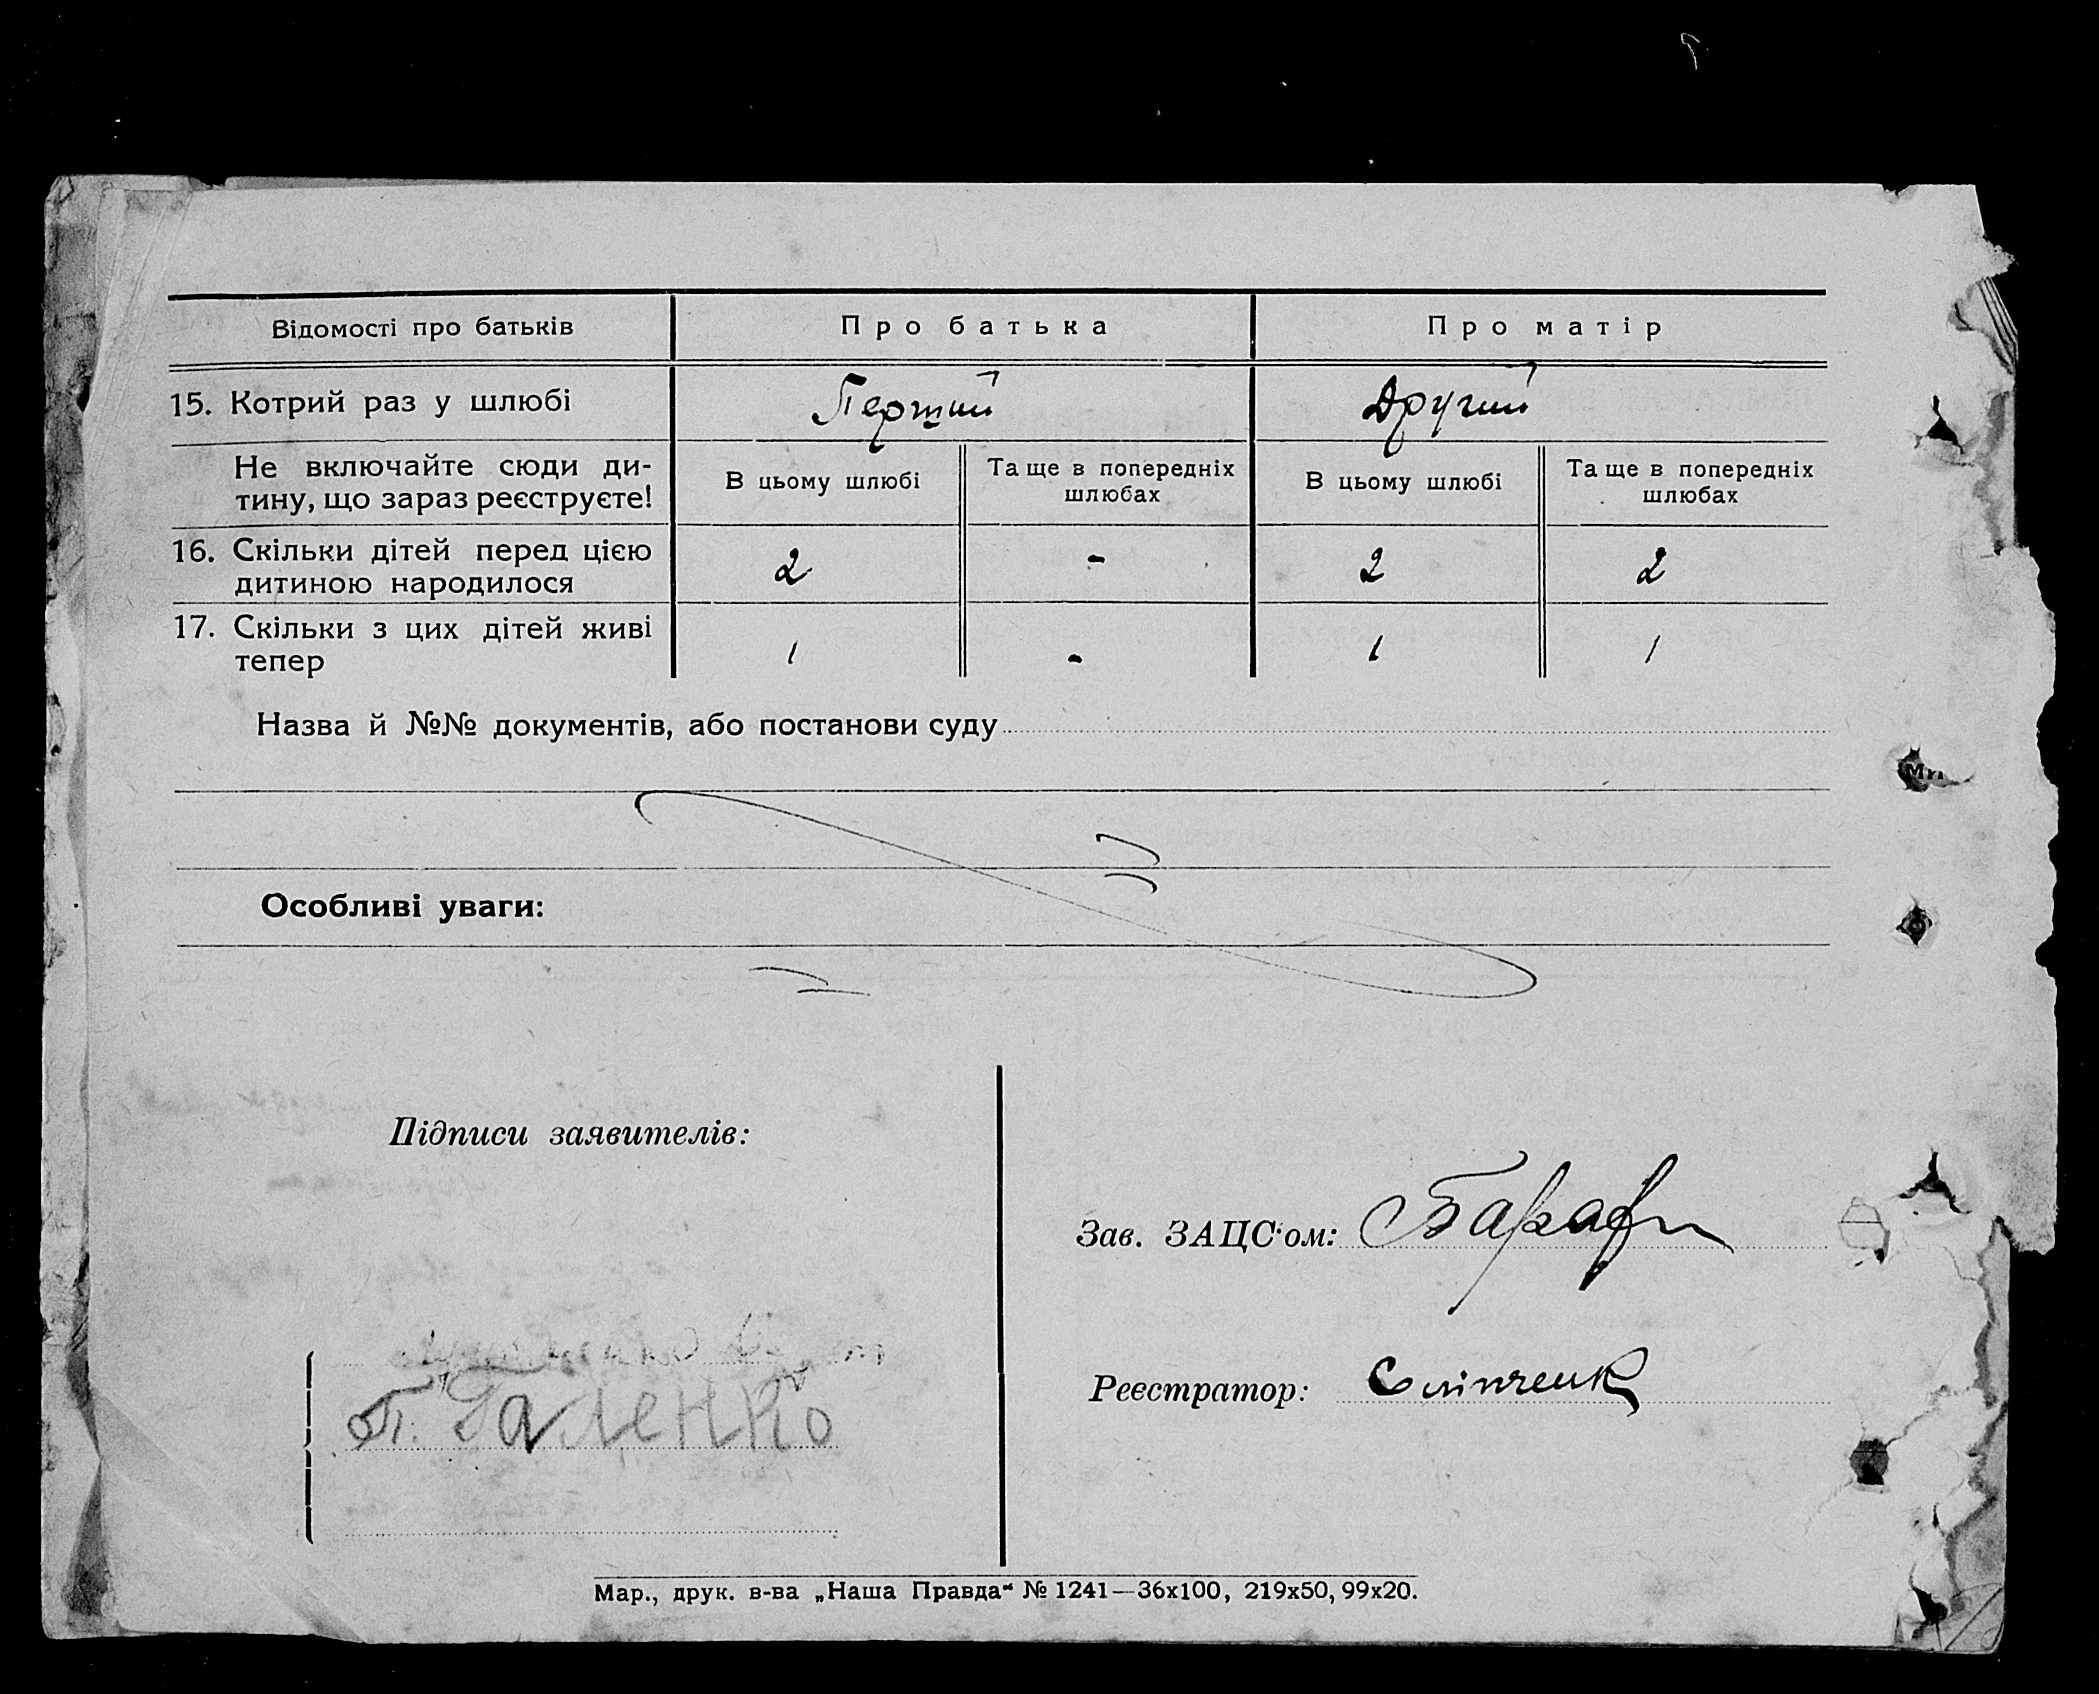 Відомості про батьків Про батька Про матір
15. Котрий раз у шлюбі Перший Другий
Не включайте сюди ди-
тину, що зараз реєструєте!
В цьому шлюбі
Та ще в попередніх
шлюбах
В цьому шлюбі
Та ще в попередніх
шлюбах
16. Скільки дітей перед цією
дитиною народилося
2 - 2 2
17. Скільки з цих дітей живі
тепер
1 - 1 1
Назва й №№ документів, або постанови суду
Особливі уваги:
Підписи заявителів:
П. Галенко
Зав. ЗАЦС'ом:
Реєстратор: Сліпченк
Мар., друк. в-ва „Наша Правда“ № 1241—36х100, 219х50, 99х20.